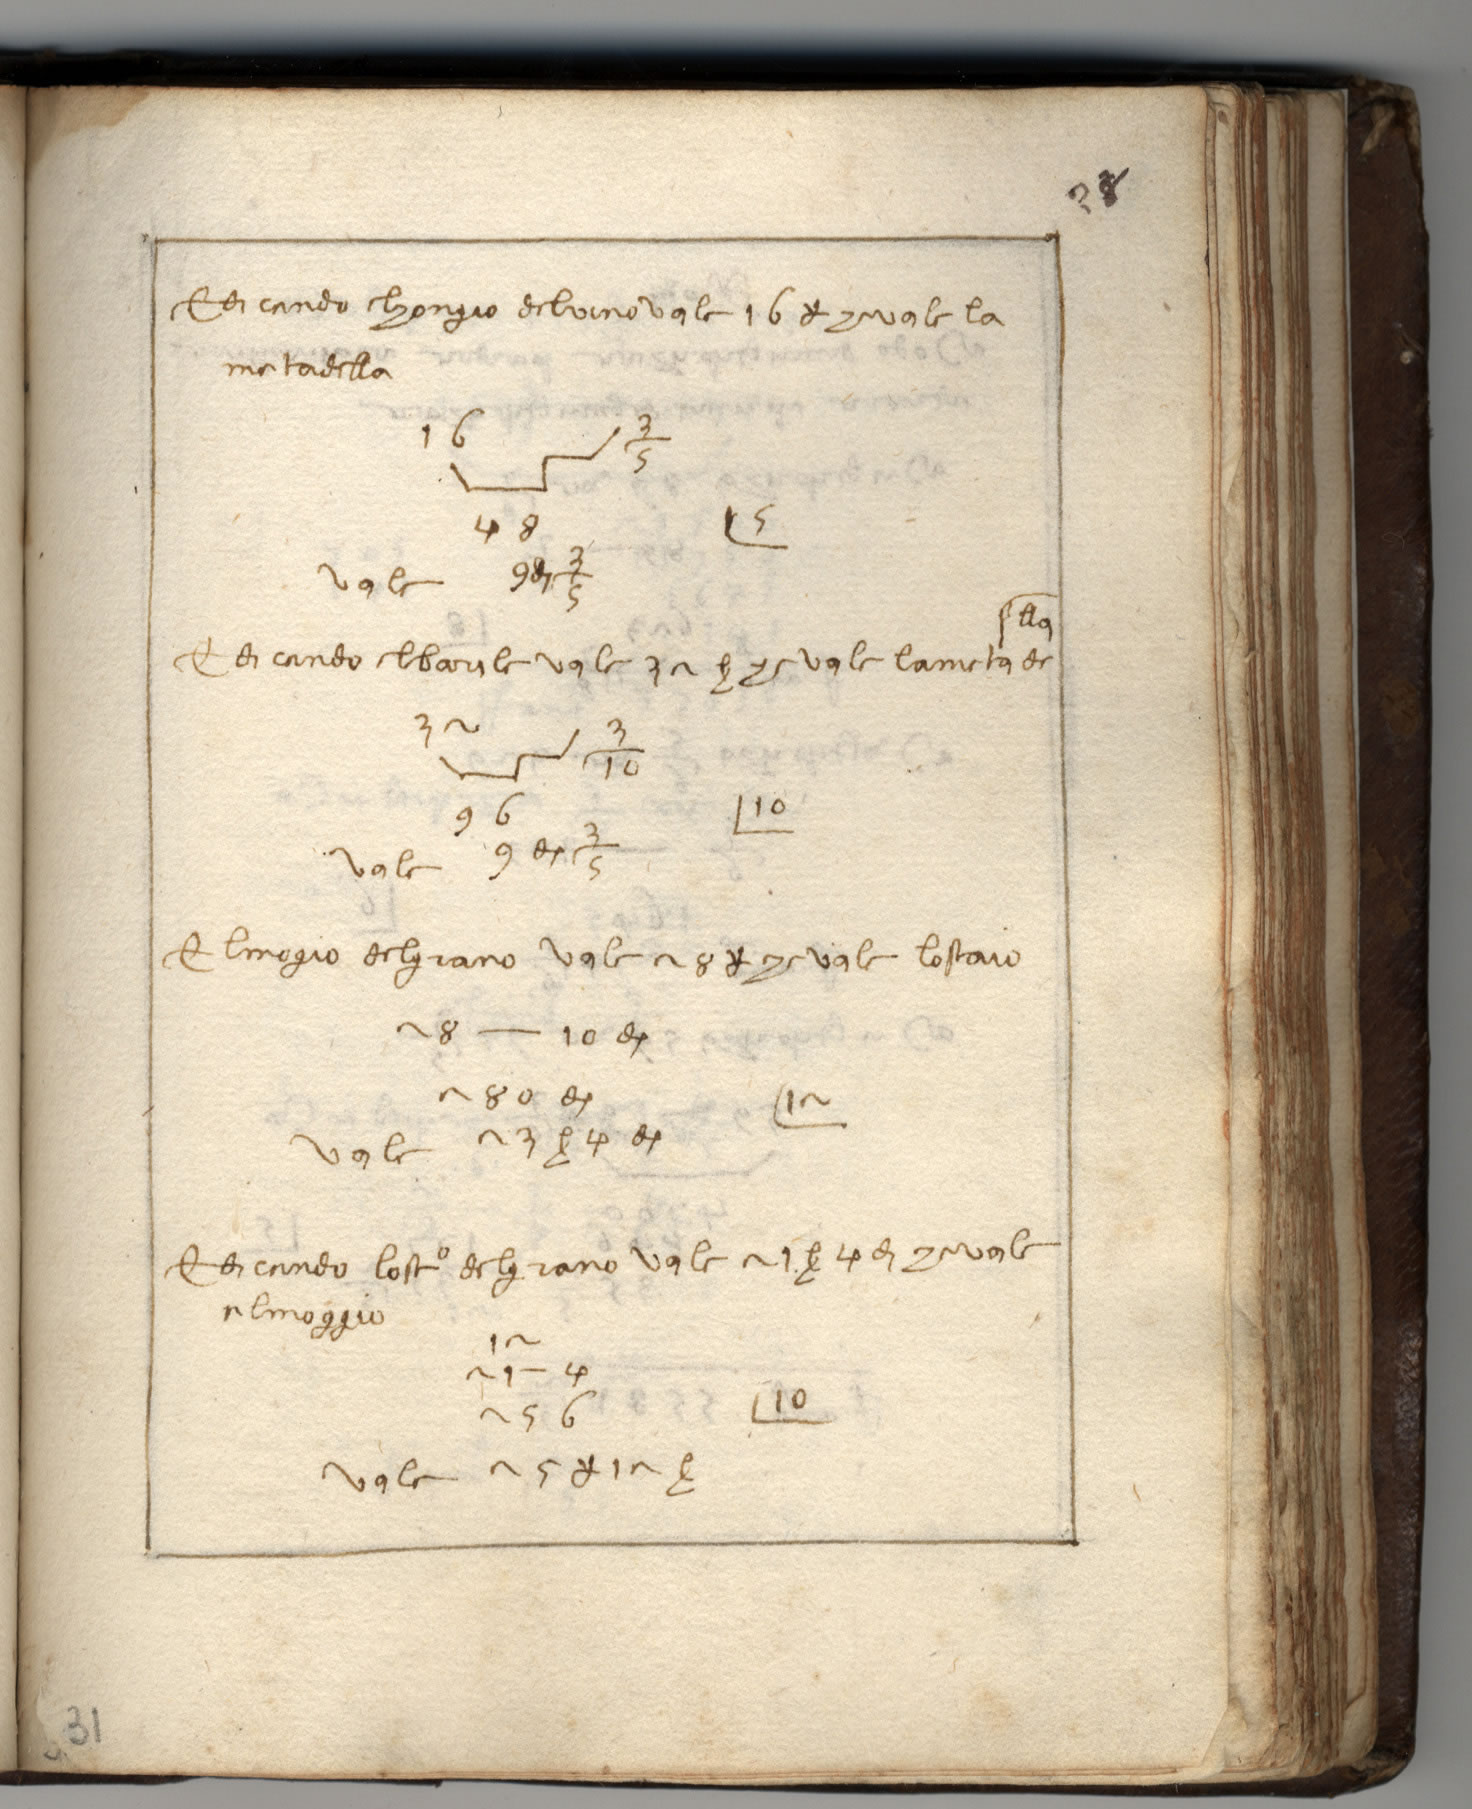 28
E di cendo chongio del vino vale 16 ₰ che vale la
metadella
16 3/5
48 5
vale 9 d 3/5
lla
E di cendo el barile vale 32 ß che vale la meta de
32 3/10
96 10
vale 9 d 3/5
El mogio del grano vale 28 ₰ che vale lo staio
28 — 10 d
280 d 12
vale 23 ß 4 d
E di cendo lo stº del grano vale 21 ß 4 d che vale
el moggio
12
21 — 4
256 10
vale 25 ₰ 12 ß
31